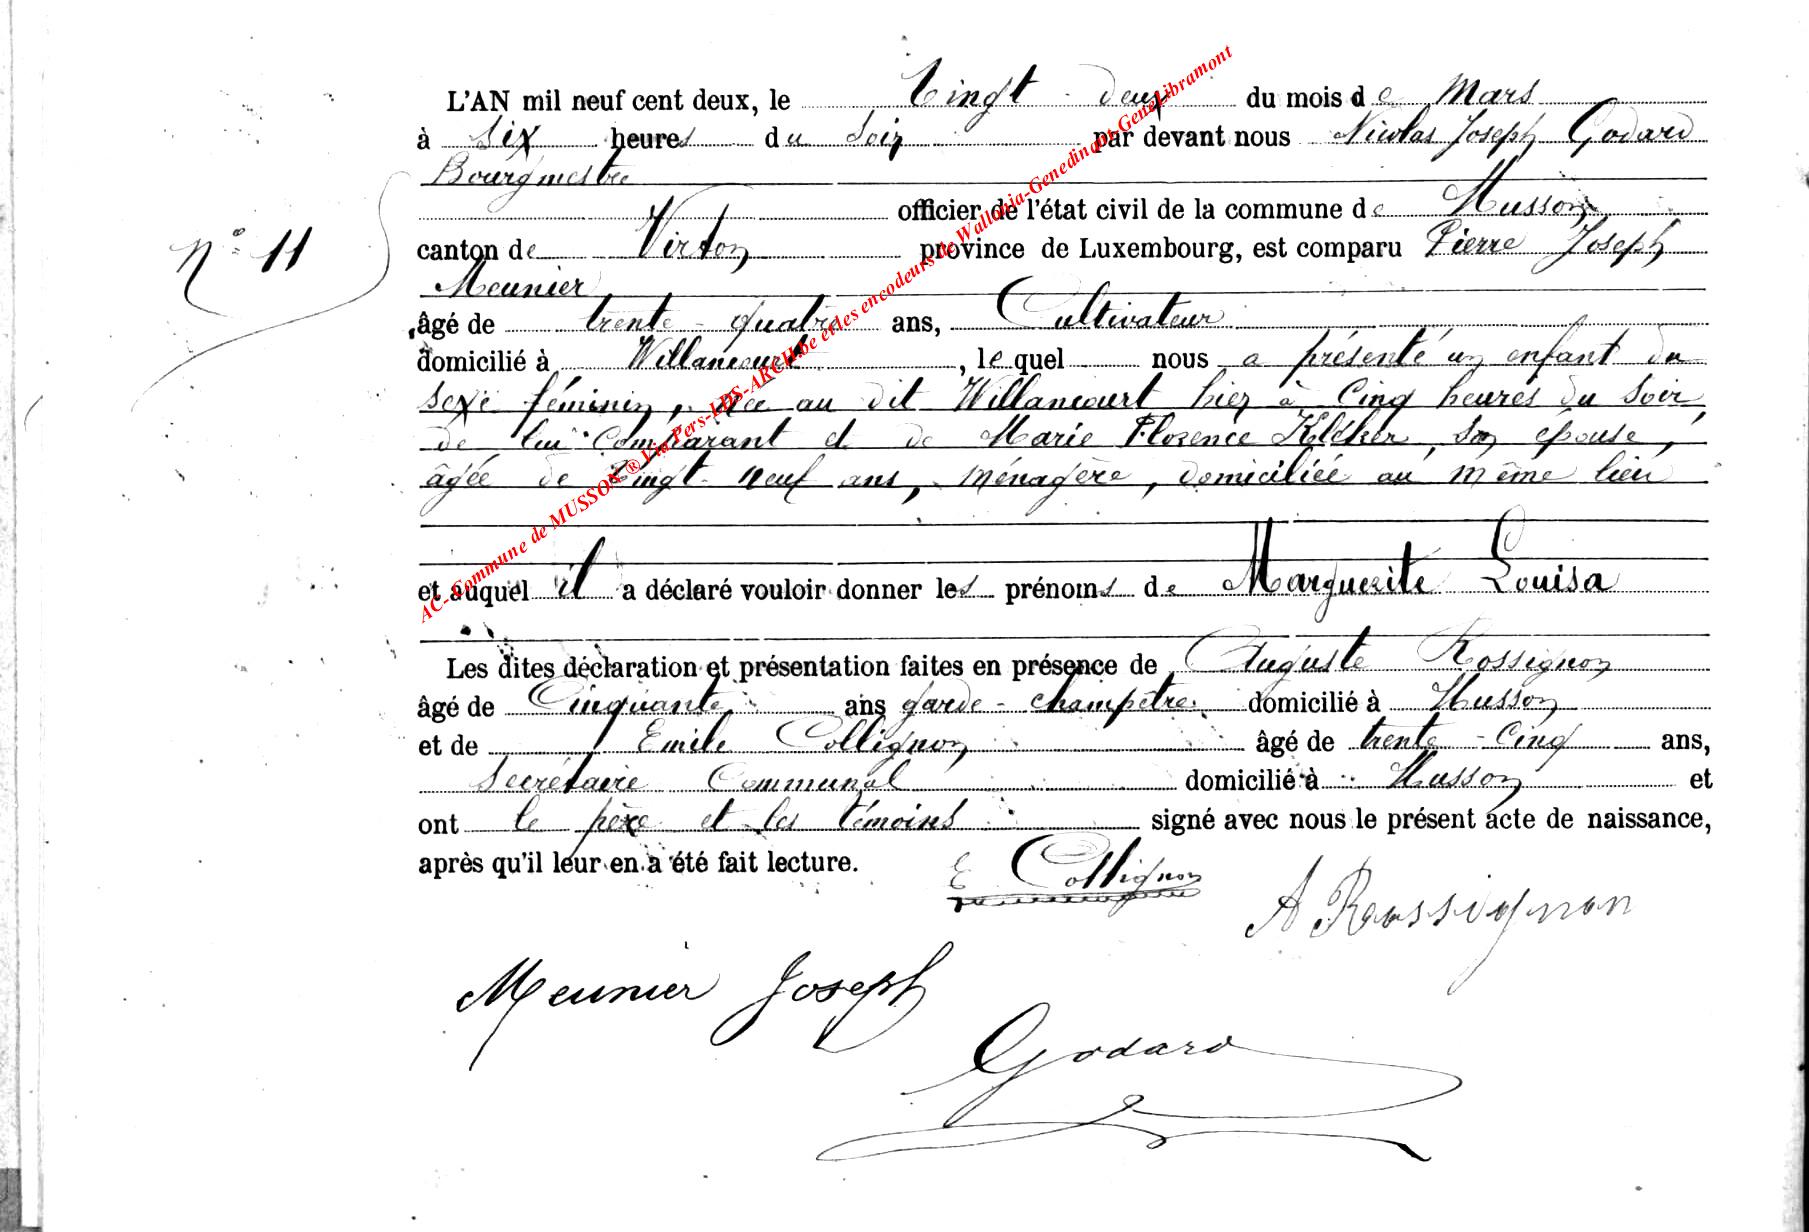 L'AN mil neuf cent deux, le Vingt-deux du mois de Mars
à Six heures du Soir par devant nous Nicolas Joseph Godard
Bourgmestre
officier de l'état civil de la commune de Musson,
N° 11
canton de Virton province de Luxembourg, est comparu Pierre Joseph
Meunier
âgé de trente-quatre ans, Cultivateur
domicilié à Willancourt, lequel nous a présenté un enfant du
sexe féminin, née au dit Willancourt hier à Cinq heures du Soir,
de lui Comparant et de Marie Florence Kléker, son épouse,
âgée de Vingt-neuf ans, ménagère, domiciliée au même lieu
et auquel il a déclaré vouloir donner les prénoms de Marguerite Louisa
Les dites déclaration et présentation faites en présence de Auguste Rossignon
âgé de Cinquante ans garde-champêtre domicilié à Musson
et de Emile Collignon âgé de trente-Cinq ans,
Secrétaire Communal domicilié à Musson et
ont le père et les témoins signé avec nous le présent acte de naissance,
après qu'il leur en a été fait lecture.
E Collignon
A Rossignon
Meunier Joseph
Godard
AC-Commune de MUSSON ® Via Pers-LDS-ARCH.be et les encodeurs de Wallonia-Genedinant-GeneLibramont